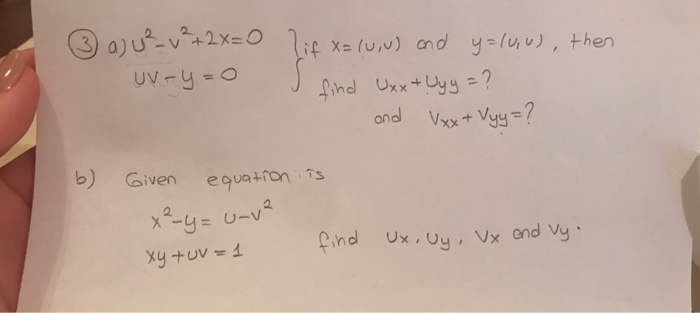 ③ a) u²-v²+2x=0 } if x=(u,v) and y=(u,v), then
uv-y=0
find Uxx+Uyy=?
and Vxx+Vyy=?
b) Given equation is
x²-y=u-v²
xy+uv=1
find Ux, Uy, Vx and Vy.